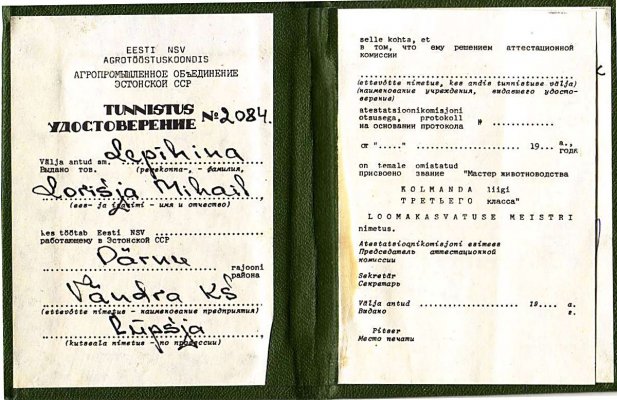 EESTI NSV
AGROTÖÖSTUSKOONDIS
АГРОПРОМЫШЛЕННОЕ ОБЪЕДИНЕНИЕ
ЭСТОНСКОЙ ССР
TUNNISTUS
УДОСТОВЕРЕНИЕ № 2084.
Välja antud sm. Lepihina
Выдано тов. (perekonna-, - фамилия,
Lorišja Mihail
(ees- ja isanimi - имя и отчество)
kes töötab Eesti NSV
работающему в Эстонской ССР
Pärnu rajooni
района
Vändra KŠ
(ettevõtte nimetus - наименование предприятия)
Lüpsja
(kutseala nimetus - по профессии)
selle kohta, et
в том, что ему решением аттестационной
комиссии
(ettevõtte nimetus, kes andis tunnistuse välja)
(наименование учреждения, выдавшего удосто-
верение)
atestatsioonikomisjoni
otsusega, protokoll №
на основании протокола
от "....." 19... a.,
года
on temale omistatud
присвоено звание "Мастер животноводства
KOLMANDA liigi
ТРЕТЬЕГО класса"
LOOMAKASVATUSE MEISTRI
nimetus.
Atestatsioonikomisjoni esimees
Председатель аттестационной
комиссии
Sekretär
Секретарь
Välja antud 19... a.
Выдано г.
Pitser
Место печати